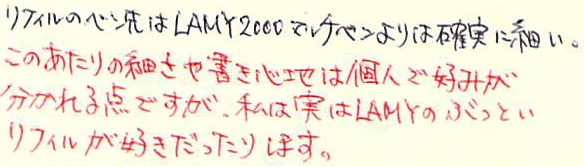 リフィルのペン先はLAMY2000マルチペンよりは確実に細い。
このあたりの細さや書き心地は個人で好みが
分かれる点ですが、私は実はLAMYのぶっとい
リフィルが好きだったりします。